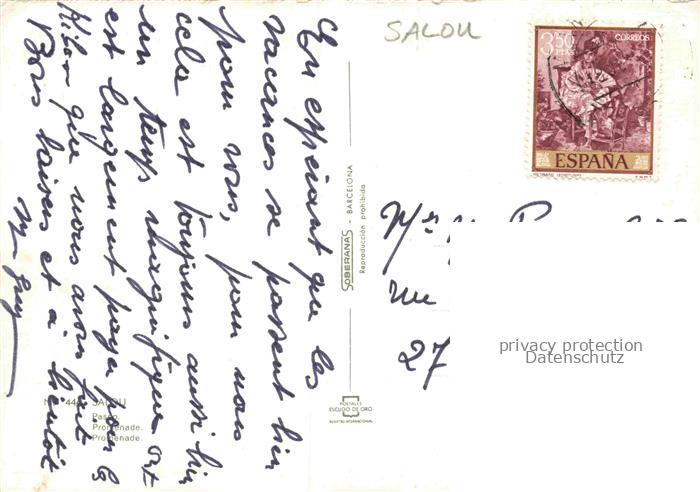 En espérant que les
vacances se passent bien
pour vous, pour nous
cela est toujours aussi bien
un temps magnifique et
est largement payé pour les
que nous avons fait
Bons baisers et à bientôt
SALOU
3,50
PTAS
CORREOS
ESPAÑA
SOBERANAS - BARCELONA
Reproducción prohibida
POSTALES
ESCUDO DE ORO
27
privacy protection
Datenschutz
SALOU
Paseo.
Promenade.
Promenade.